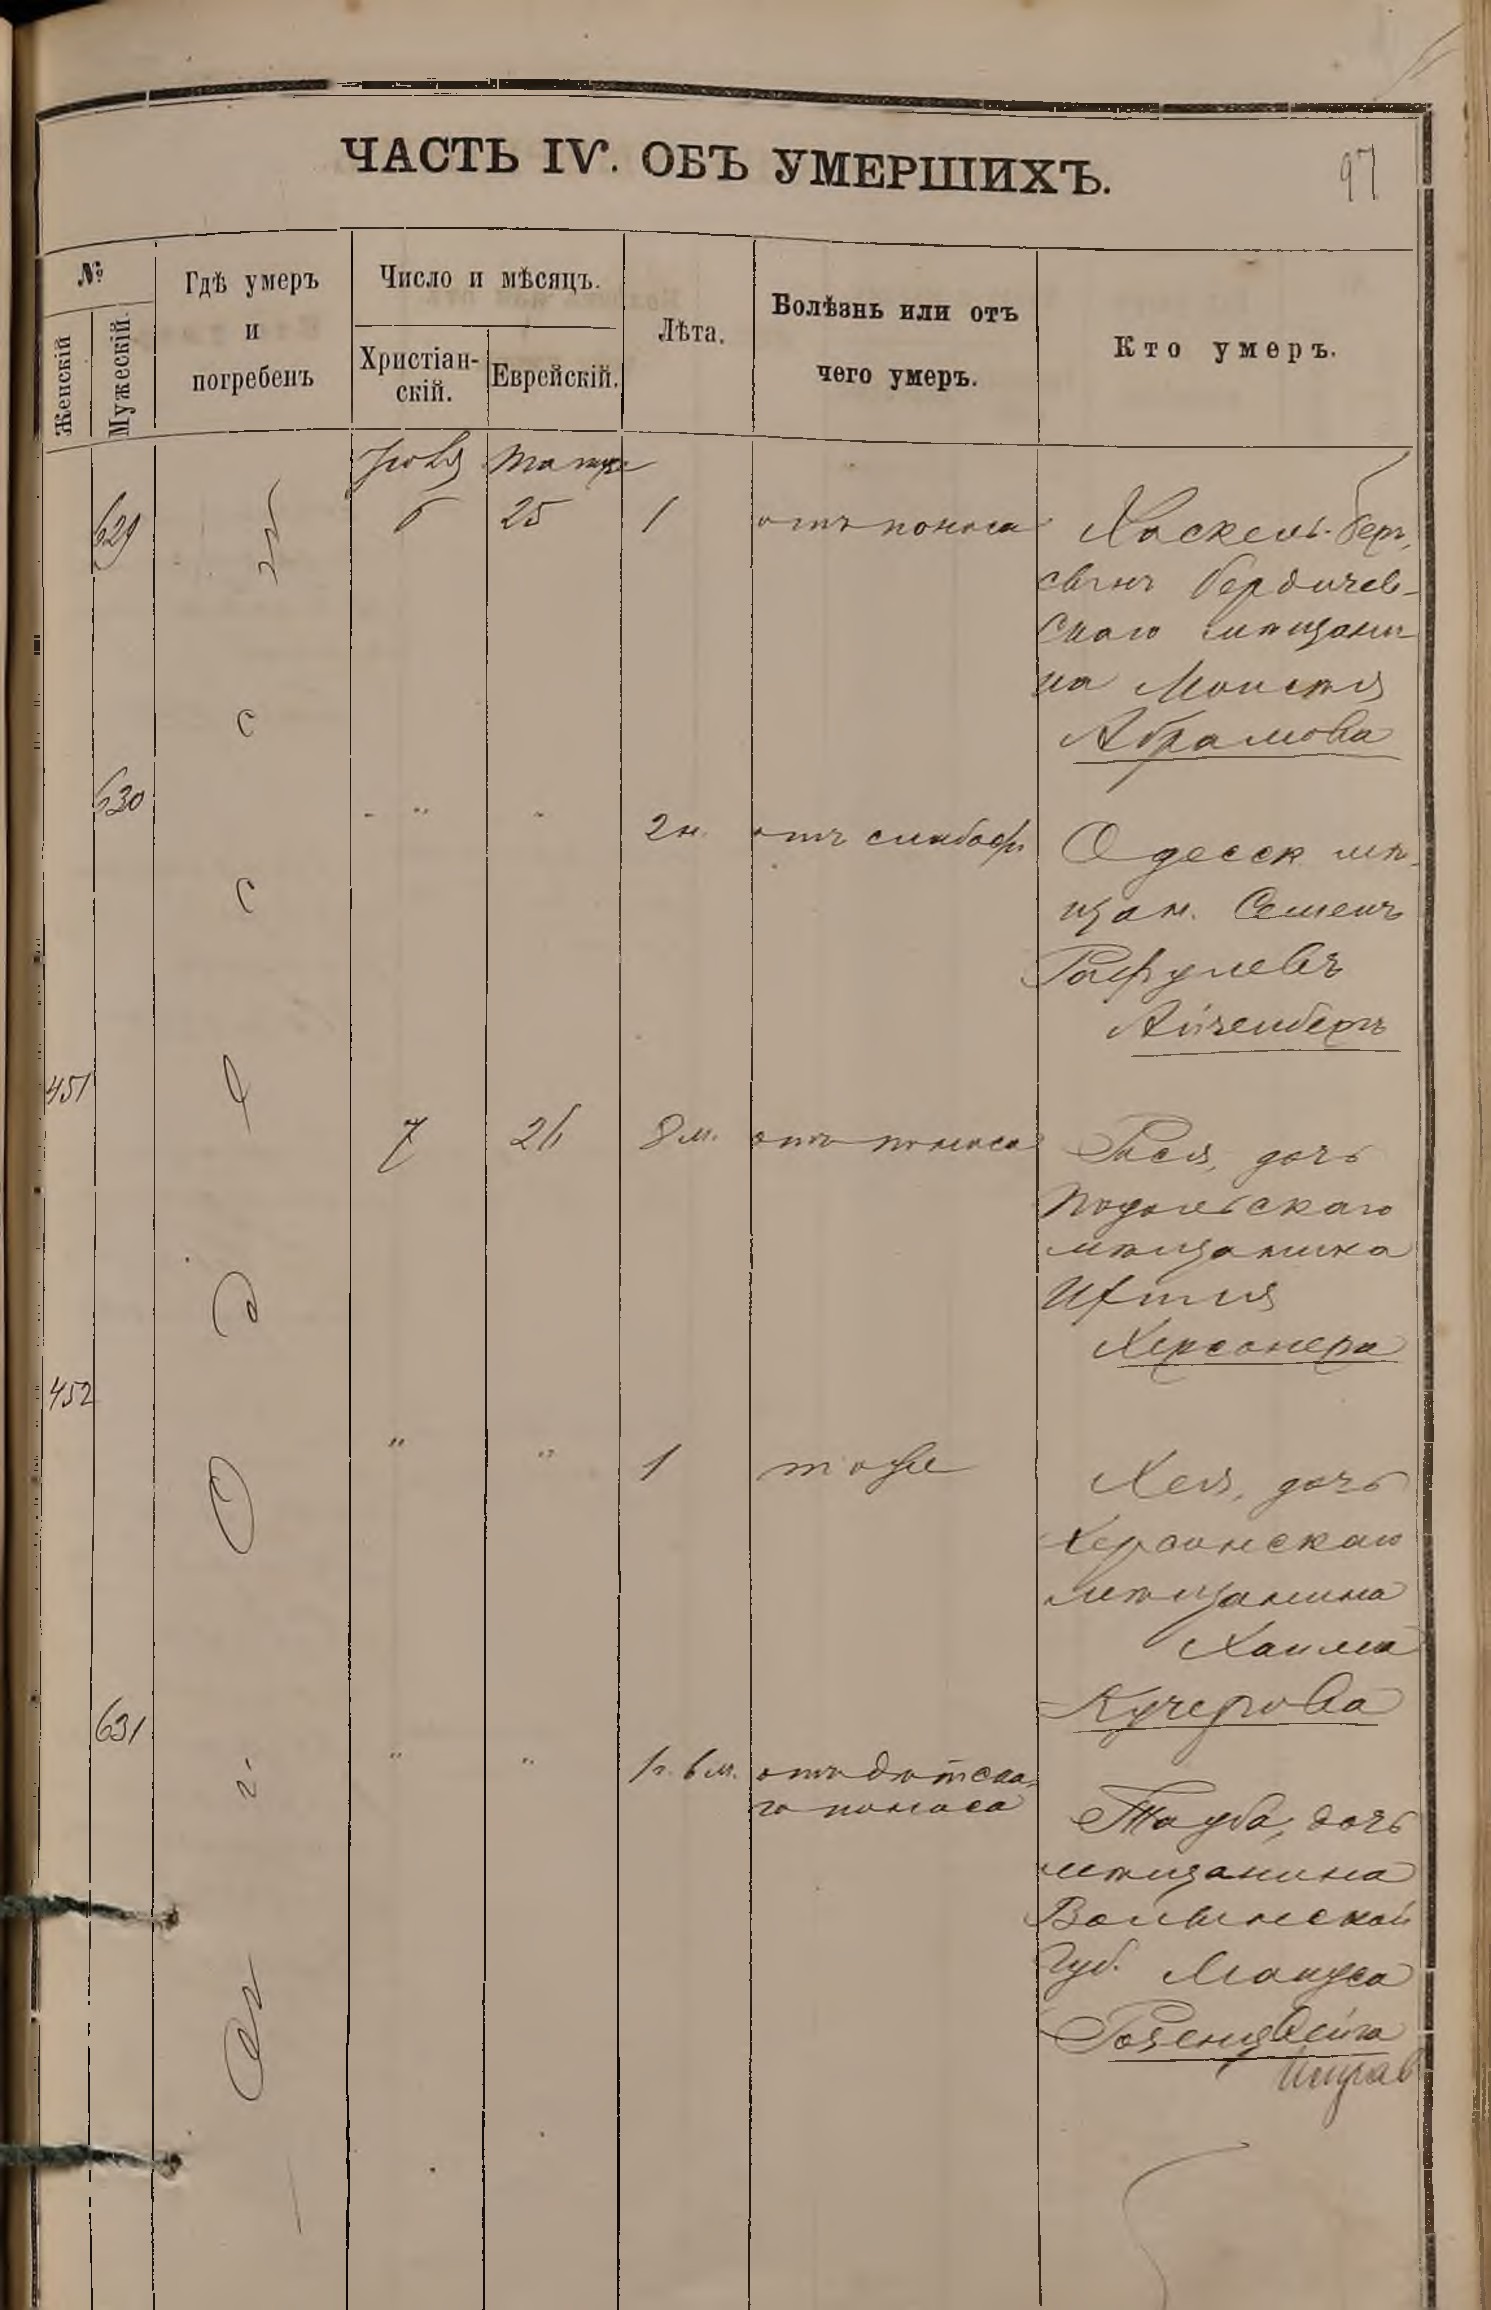 97
ЧАСТЬ IV. ОБЪ УМЕРШИХЪ.
№
Женскій
Мужескій.
Гдѣ умеръ
и
погребенъ
Число и мѣсяцъ.
Христіан-
скій.
Еврейскій.
Лѣта.
Болѣзнь или отъ
чего умеръ.
Кто умеръ.
въ г. Одессѣ
629
6
25
1
отъ поноса
Хаскель-Беръ,
сынъ бердичев-
скаго мѣщани-
на Моисея
Абрамова
630
"
"
2 н.
отъ слабост.
Одесск мѣ-
щан. Семенъ
451
7
26
8 м.
отъ поноса
Рася, дочь
подольскаго
мѣщанина
Херсонера
452
"
"
1
тоже
Хая, дочь
Херсонскаго
мѣщанина
Хаима
Кучерова
631
"
"
1 г. 6 м.
отъ дѣтска-
го поноса
Тауба, дочь
мѣщанина
Волынской
губ.
Розенцвейга